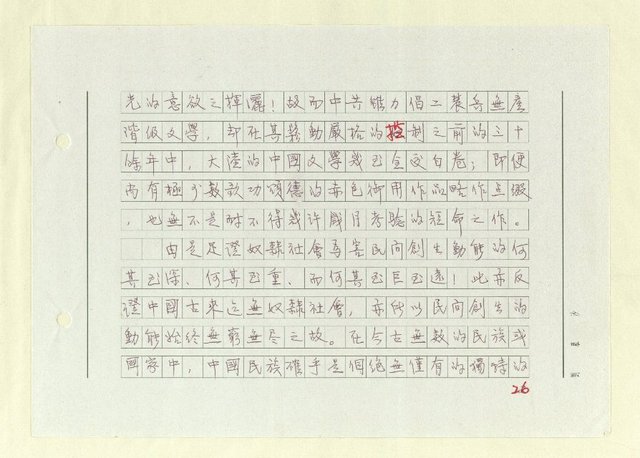 光的意欲之揮灑！故而中共雖力倡工農兵無產
階級文學，却在其鬆動嚴格的控制之前的三十
餘年中，大陸的中國文學幾已全交白卷；即便
尚有極少數歌功頌德的赤色御用作品略作點綴
，也無不是耐不得幾許歲月考驗的短命之作。
由是足證奴隸社會為害民間創生動能的何
其已深、何其已重、而何其已巨已遠！此亦反
證中國古來迄無奴隸社會，亦所以民間創生的
動能始終無窮無盡之故。在今古無數的民族或
國家中，中國民族確乎是個絕無僅有的獨特的
26